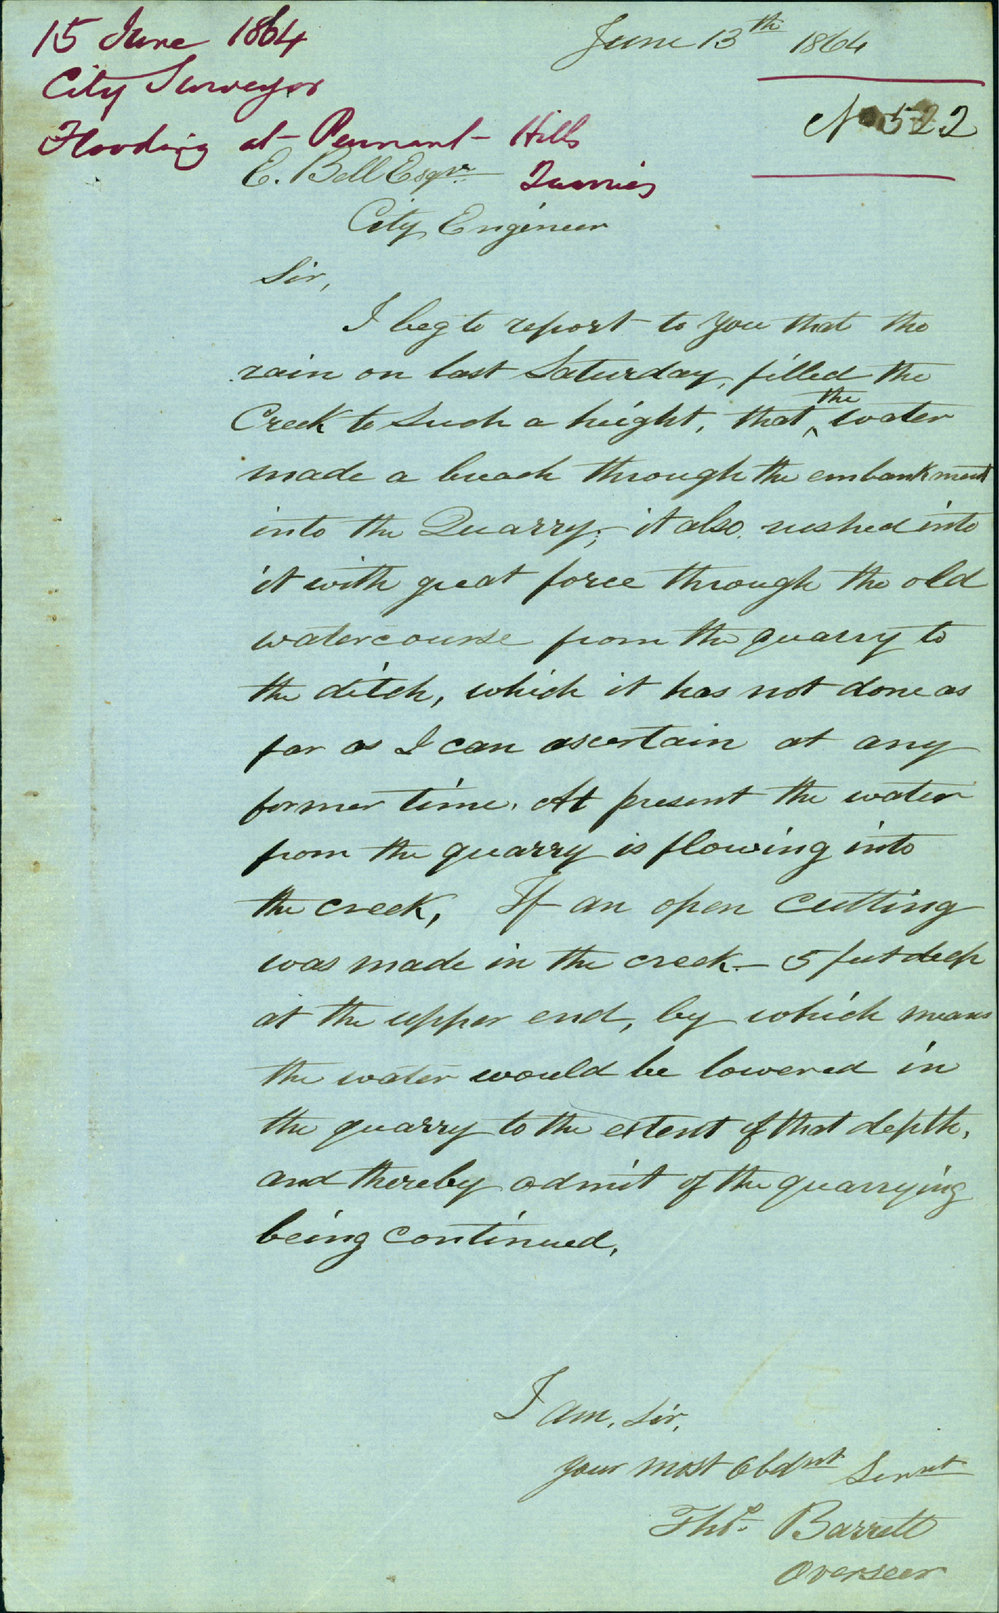 15 June 1864
City Surveyor
Flooding at Pennant Hills
Quarries
June 13th 1864
No 522
E. Bell Esqre
City Engineer
Sir,
I beg to report to you that the
rain on last Saturday, filled the
Creek to such a height, that the water
made a breach through the embankment
into the Quarry; it also rushed into
it with great force through the old
watercourse from the quarry to
the ditch, which it has not done as
far as I can ascertain at any
former time. At present the water
from the quarry is flowing into
the creek, If an open cutting
was made in the creek — 5 feet deep
at the upper end, by which means
the water would be lowered in
the quarry to the extent of that depth,
and thereby admit of the quarrying
being continued.
I am, Sir,
your most Obdnt Servnt
Thos. Barrett
Overseer